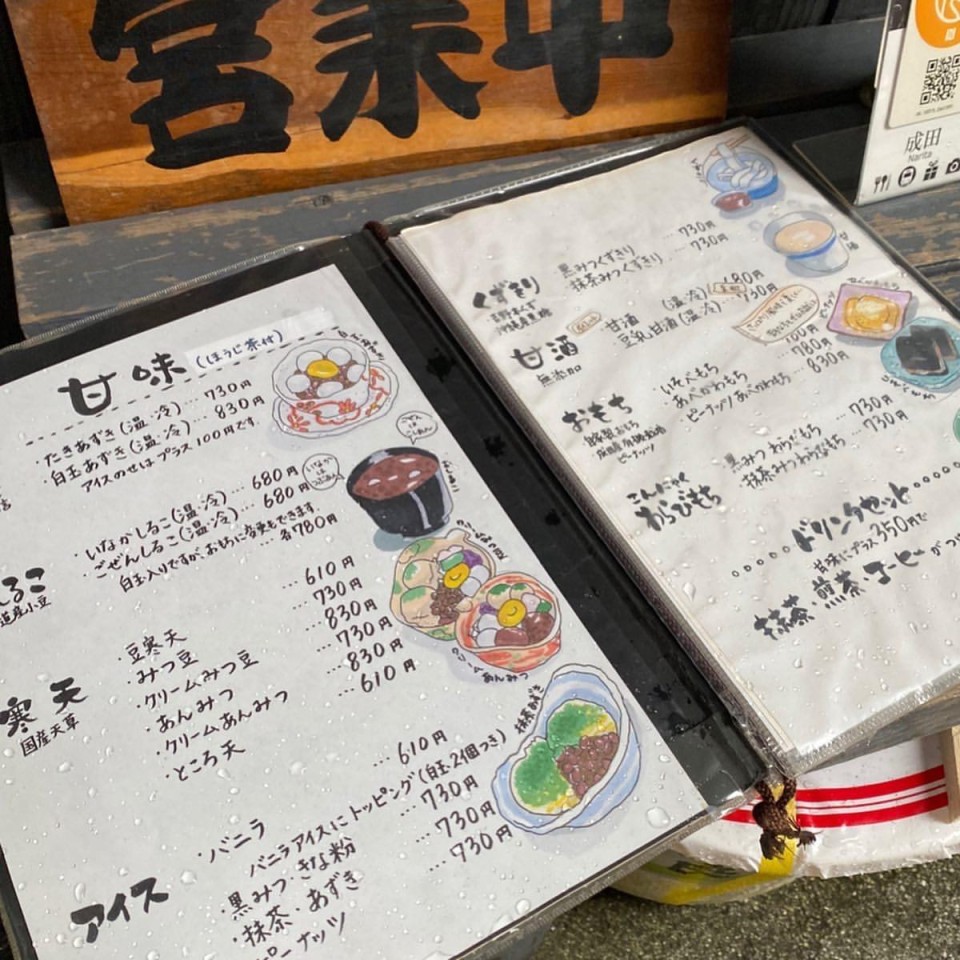 営業中
成田
Narita
甘味 (ほうじ茶付)
・たきあずき(温・冷)… 730円
・白玉あずき(温・冷)… 830円
アイスのせはプラス100円です
るこ
道産小豆
・いなかしるこ(温・冷)… 680円
・ごぜんしるこ(温・冷)… 680円
白玉入りですが、おもちに変更もできます。
… 各780円
いなかはつぶあん
ごぜんはこしあん
寒天
国産天草
・豆寒天 … 610円
・みつ豆 … 730円
・クリームみつ豆 … 830円
・あんみつ … 730円
・クリームあんみつ … 830円
・ところ天 … 610円
あんみつ
アイス
・バニラ … 610円
バニラアイスにトッピング(白玉2個つき)
・黒みつ・きな粉 … 730円
・抹茶・あずき … 730円
ピーナッツ … 730円
抹茶あずき
くずきり
吉野本くず
沖縄産黒糖
黒みつくずきり … 730円
抹茶みつくずきり … 730円
甘酒
無添加
甘酒 (温・冷) 680円
豆乳甘酒(温・冷) 730円
甘酒
おもち
・いそべもち
あべかわもち … 780円
ピーナッツあべかわもち … 830円
ピーナッツ
こんにゃく
わらびもち
・黒みつわらびもち … 730円
抹茶みつわらびもち … 730円
ドリンクセット
甘味にプラス350円で
抹茶・煎茶・コーヒーがつ